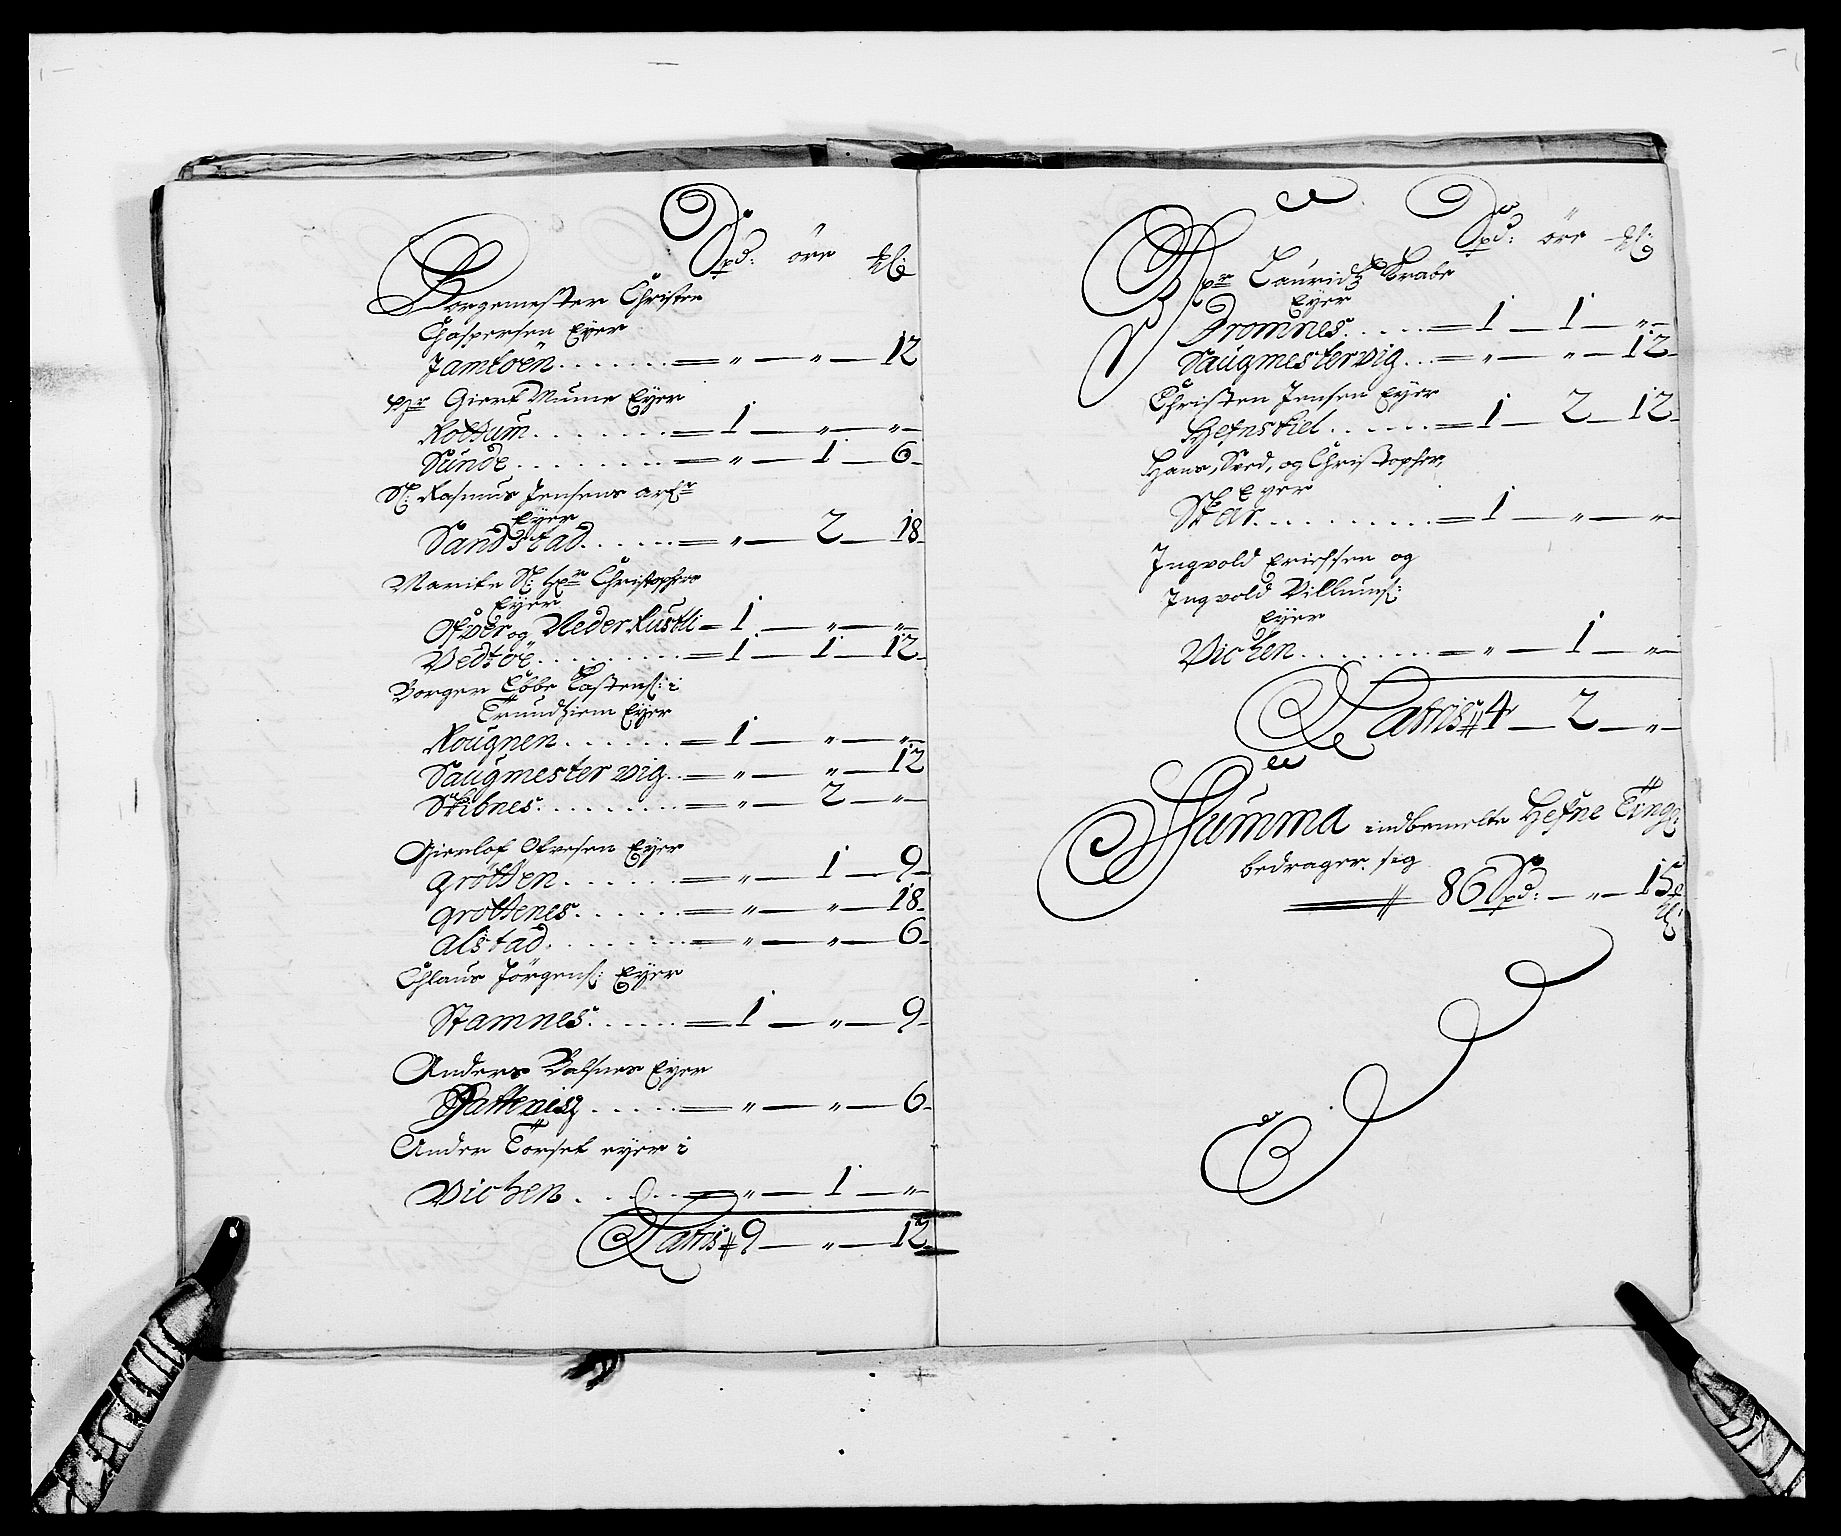 Spd: öre
Borgemester Christen
Caspersen Eyer
Jamtöen . . . . . . . = " — " — 12
Hr Giert Mume Eyer
Rottum . . . . . . . = 1 — " — "
Sunde . . . . . . . = " — 1 — 6
Sl: Rasmus Jensens arfr
Eyer
Sandstad . . . . . = " — 2 — 18
Marite Sl: Hr: Christophers
Eyer
Ofver og Neder Rustli = 1 — " — "
Vedtöe . . . . . . . = 1 — 1 — 12
Borger Ebbe Castens: i
Trundhiem Eyer
Rougnen . . . . . . = 1 — " — "
Saugmester vig . . = " — " — 12
Skibnes . . . . . . . = " — 2 — "
Gierlof Olvesen Eyer
Grötten . . . . . . = " — 1 — 9
Grøttenes . . . . . = " — " — 18
Alstad . . . . . . . = " — " — 6
Chlaus Jörgens: Eyer
Stamnes . . . . . . = 1 — " — 9
Anders Balsnes Eyer
. . . . . . = " — " — 6
Ander Torset eyer i
Vichen . . . . . = " — 1 — "
Latris 9 — " — 12
Spd: öre
Hr Lauridz Krabe
Eyer
Dromnes . . . . . = 1 — 1 — "
Saugmestervig . . = " — " — 12
Christen Jensen Eyer
Hefnskiel . . . . . = 1 — 2 — 12
Hans, Sved, og Christopher,
Eyer
Skar . . . . . . . . . = 1 — " — "
Ingvold Erichsen og
Ingvold Villums:
Eyer
Vichen . . . . . . . = " — 1 — "
Latris 4 — 2 — "
Summa indbemelte Hefne Tings
bedrager sig
86 Spd: — " — 15